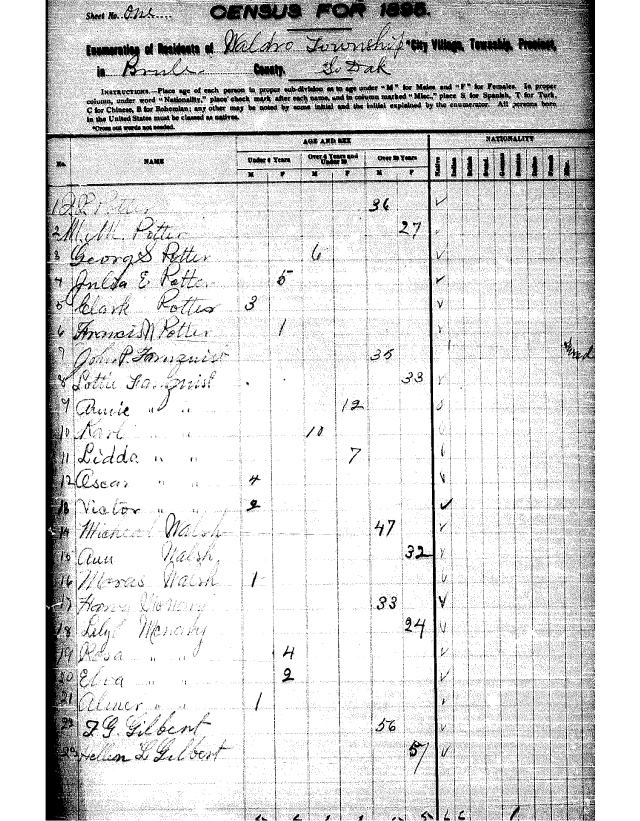 Sheet No. One
CENSUS FOR 1895.
Enumeration of Residents of Waldro Township *City Village, Township, Precinct,
in Brule County, So Dak
INSTRUCTIONS.—Place age of each person in proper sub-division as to age under "M" for Males and "F" for Females. In proper
column, under word "Nationality," place check mark after each name, and in column marked "Misc." place S. for Spanish, T for Turk,
C for Chinese, B for Bohemian; any other may be noted by some initial and the initial explained by the enumerator. All persons born
in the United States must be classed as natives.
*Cross out words not needed.
No. NAME AGE AND SEX NATIONALITY
Under 6 Years Over 6 Years and Under 20 Over 20 Years
M F M F M F Native
1 Potter 36 ✓
2 M. M. Potter 27 ✓
3 George S Potter 6 ✓
4 Julia E Potter 5 ✓
5 Clark Potter 3 ✓
6 Francis N Potter 1 ✓
7 John P. Farnquist 35
8 Lottie Farnquist 33 ✓
9 Annie " " 12 ✓
10 Karl " " 10 ✓
11 Lidda " " 7 ✓
12 Oscar " " 4 ✓
13 Victor " " 2 ✓
14 Micheal Walsh 47 ✓
15 Ann Walsh 32 ✓
16 Walsh 1 ✓
17 33 ✓
18 24 ✓
19 Rosa " " 4 ✓
20 Elva " " 2 ✓
21 Almer " " 1 ✓
22 F. G. Gilbert 56 ✓
23 Hellen L Gilbert 51 ✓